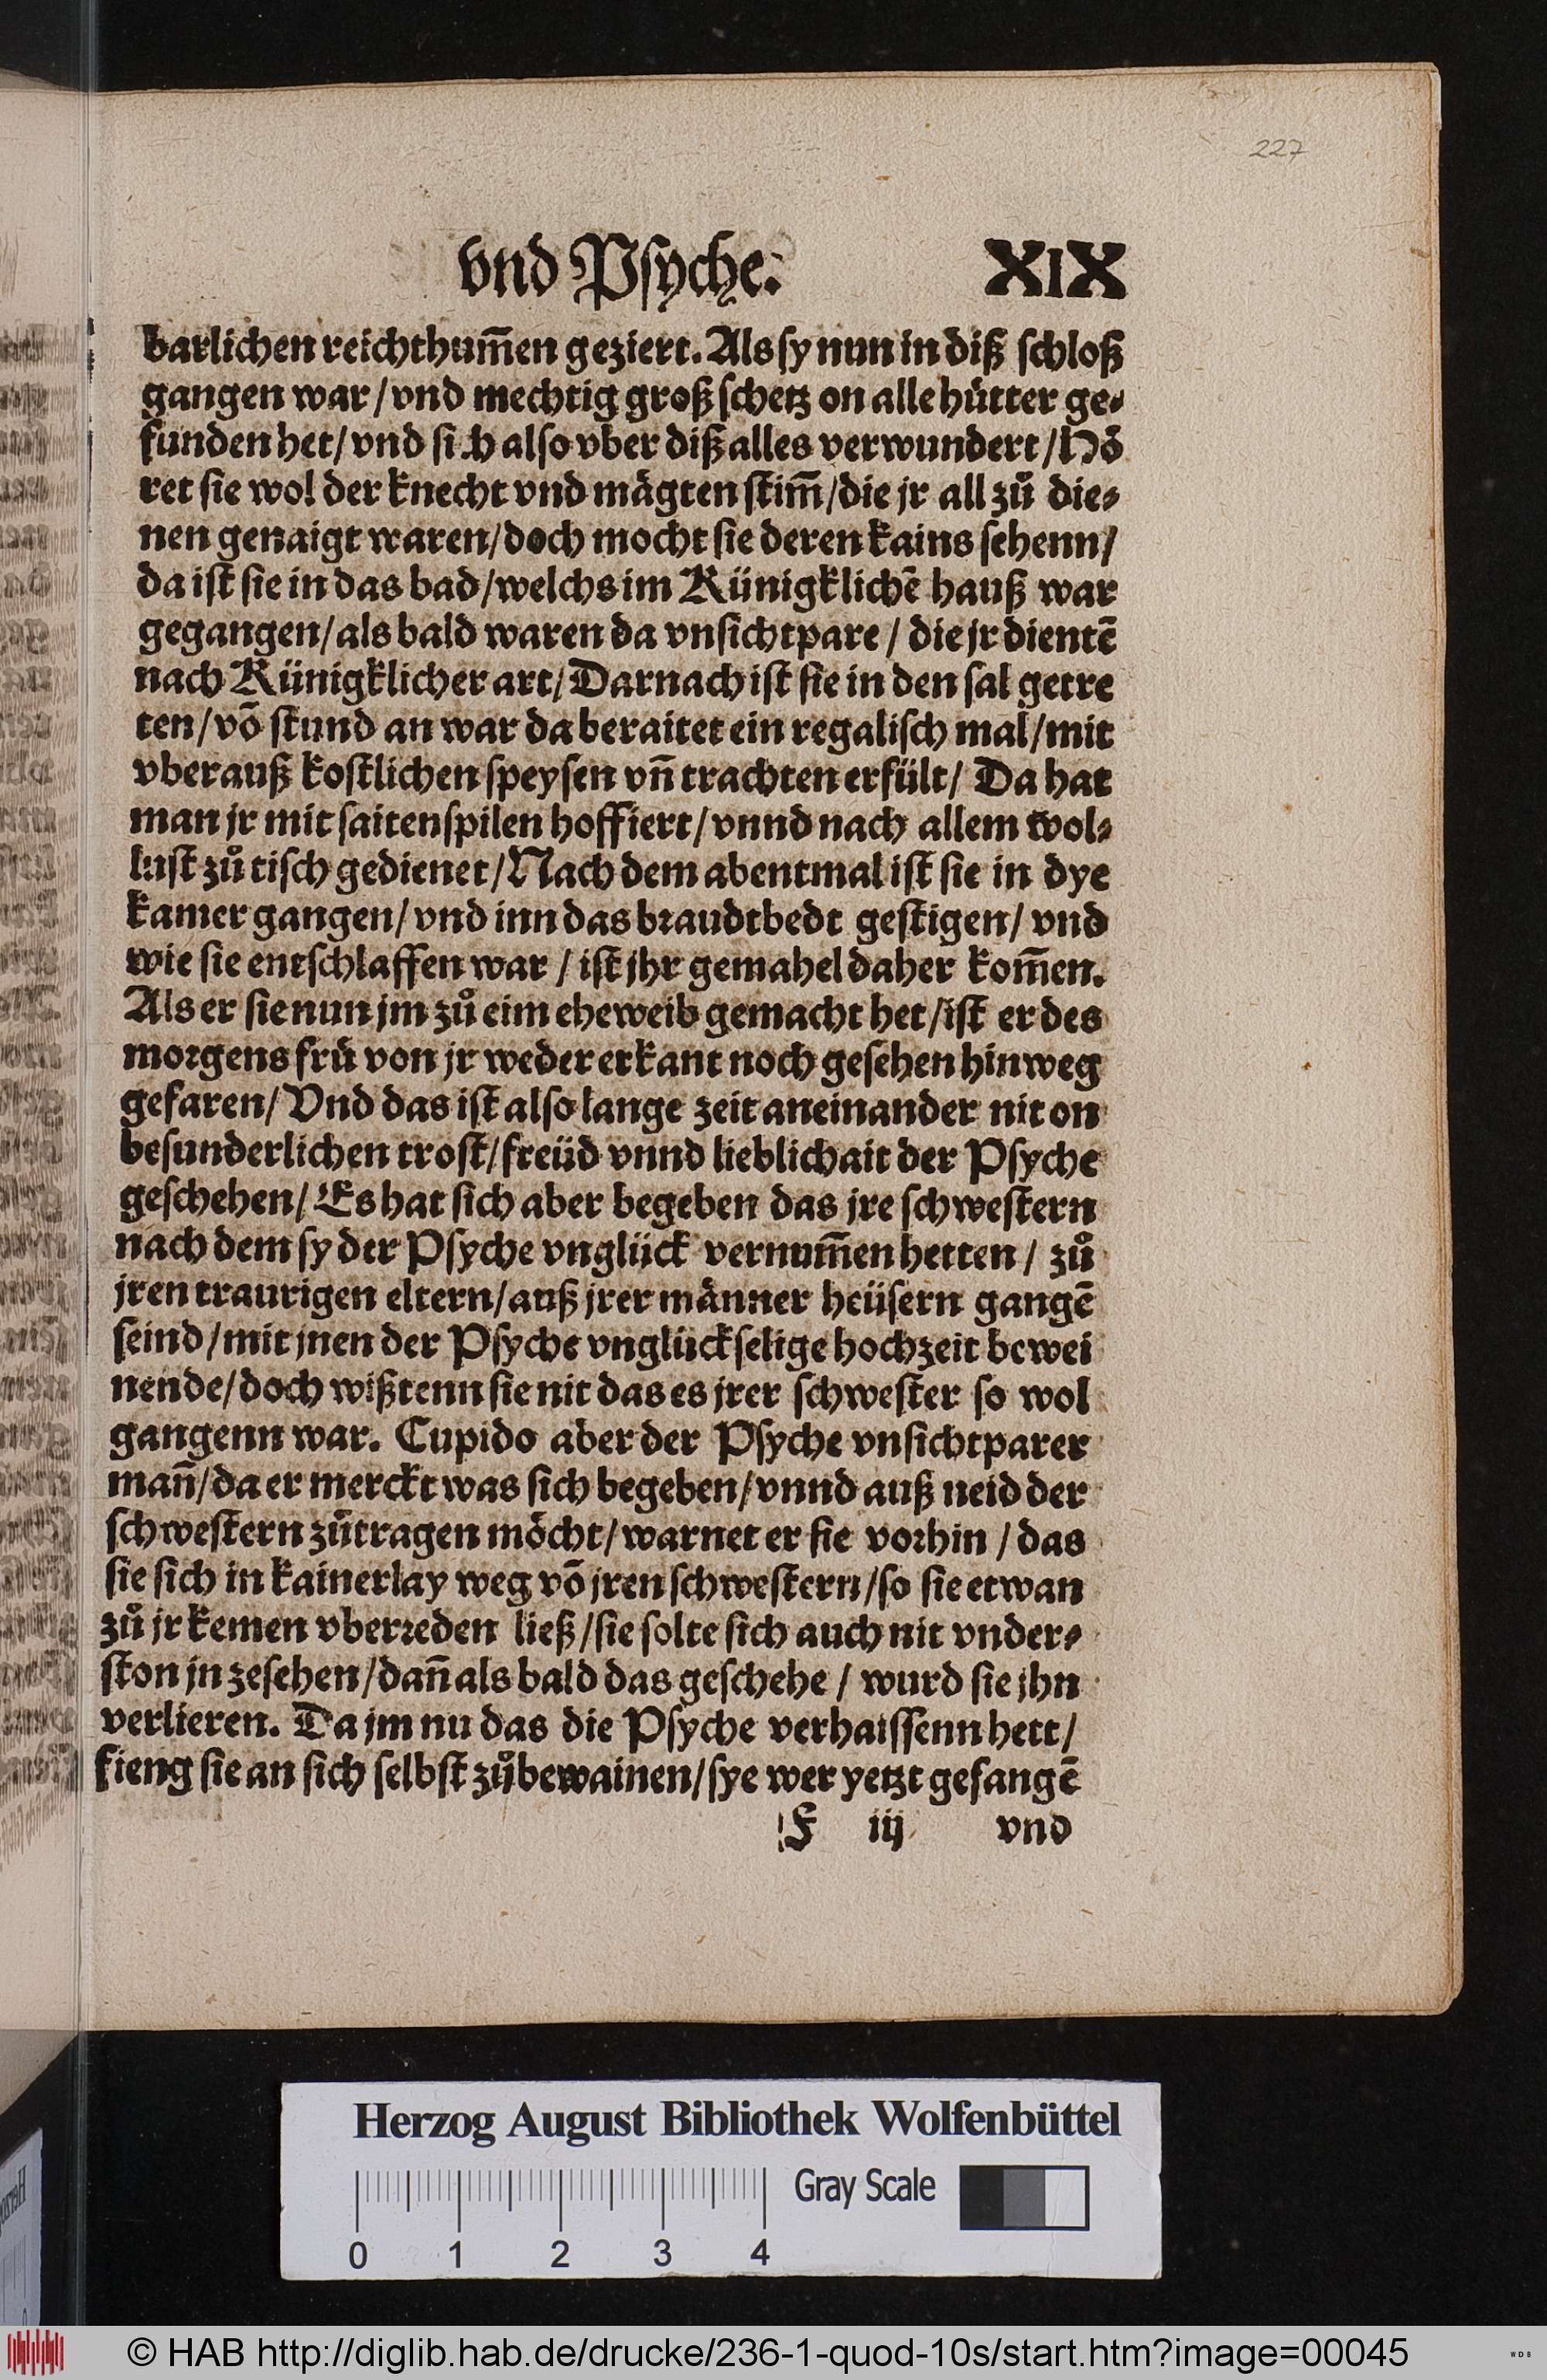 227
vnd Psyche. XIX
barlichen reichthum̃en geziert. Als sy nun in diß schloß
gangen war / vnd mechtig groß schetz on alle hütter ge-
funden het / vnd sich also vber diß alles verwundert / Hö
ret sie wol der knecht vnd mägten stim̃ / die jr all zů die-
nen genaigt waren / doch mocht sie deren kains sehenn /
da ist sie in das bad / welchs im Künigklichẽ hauß war
gegangen / als bald waren da vnsichtpare / die jr dientẽ
nach Künigklicher art / Darnach ist sie in den sal getre
ten / võ stund an war da beraitet ein regalisch mal / mit
vberauß kostlichen speysen vñ trachten erfült / Da hat
man jr mit saitenspilen hoffiert / vnnd nach allem wol-
lust zů tisch gedienet / Nach dem abentmal ist sie in dye
kamer gangen / vnd inn das braudtbedt gestigen / vnd
wie sie entschlaffen war / ist jhr gemahel daher kom̃en.
Als er sie nun jm zů eim eheweib gemacht het / ist er des
morgens frü von jr weder erkant noch gesehen hinweg
gefaren / Vnd das ist also lange zeit aneinander nit on
besunderlichen trost / freüd vnnd lieblichait der Psyche
geschehen / Es hat sich aber begeben das jre schwestern
nach dem sy der Psyche vnglück vernum̃en hetten / zů
jren traurigen eltern / auß jrer männer heüsern gangẽ
seind / mit jnen der Psyche vnglückselige hochzeit bewei
nende / doch wißtenn sie nit das es jrer schwester so wol
gangenn war. Cupido aber der Psyche vnsichtparer
mañ / da er merckt was sich begeben / vnnd auß neid der
schwestern zůtragen möcht / warnet er sie vorhin / das
sie sich in kainerlay weg võ jren schwestern / so sie etwan
zů jr kemen vberreden ließ / sie solte sich auch nit vnder-
ston jn zesehen / dañ als bald das geschehe / wurd sie jhn
verlieren. Da jm nu das die Psyche verhaissenn hett /
fieng sie an sich selbst zůbewainen / sye wer yetzt gefangẽ
F iij vnd
Herzog August Bibliothek Wolfenbüttel
Gray Scale
0 1 2 3 4
© HAB http://diglib.hab.de/drucke/236-1-quod-10s/start.htm?image=00045